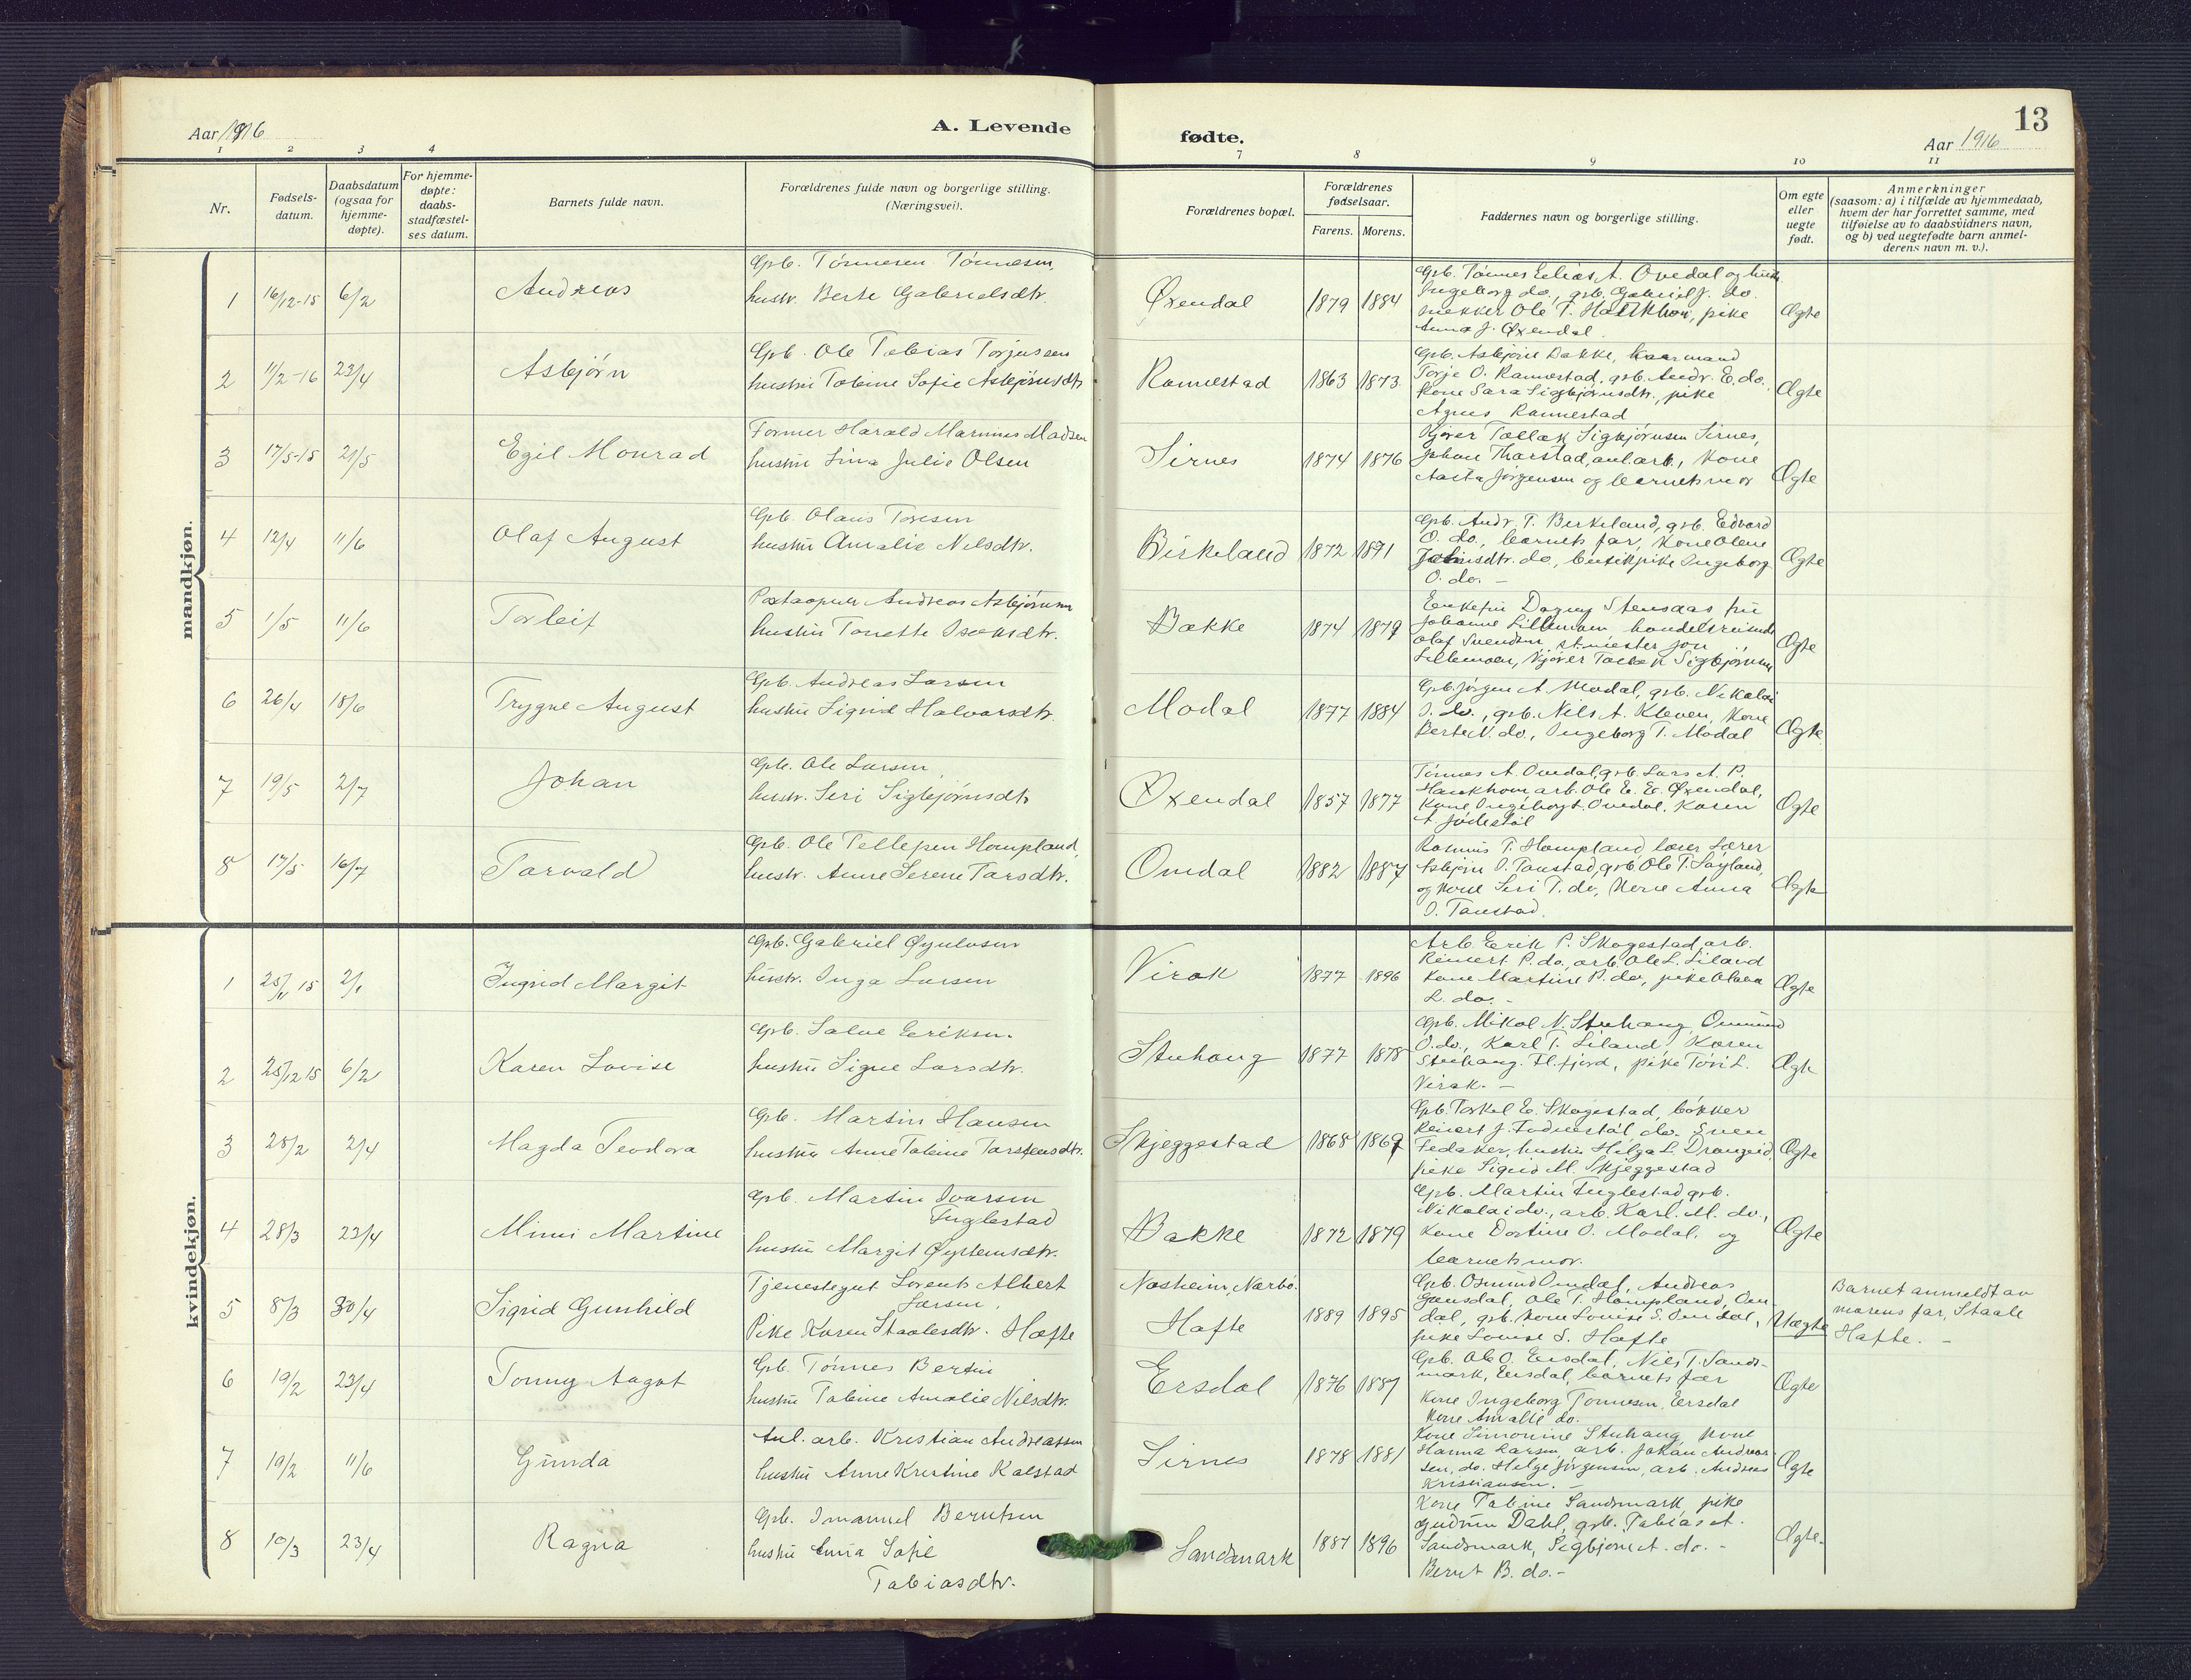 Aar 1916
A. Levende
fødte.
Aar 1916
13
1 2 3 4
7 8 9 10 11
Nr.
Fødsels-
datum.
Daabsdatum
(ogsaa for
hjemme-
døpte).
For hjemme-
døpte:
daabs-
stadfæstel-
ses datum.
Barnets fulde navn.
Forældrenes fulde navn og borgerlige stilling.
(Næringsvei).
Forældrenes bopæl.
Forældrenes
fødselsaar.
Farens. Morens.
Faddernes navn og borgerlige stilling.
Om egte
eller
uegte
født.
Anmerkninger
(saasom: a) i tilfælde av hjemmedaab,
hvem der har forrettet samme, med
tilføielse av to daabsvidners navn,
og b) ved uegtefødte barn anmel-
derens navn m. v.).
mandkjøn.
1 16/12-15 6/2
Andreas
Grb. Tønnesen Tønnesen,
hustr. Berte Gabrielsdtr.
Øxendal
1879 1884
Grb. Tønnes Elias A. Ovedal og hustr.
Ingeborg do., grb. Gabriel J. do.
snekker Ole T. Haukhom, pike
Anna J. Øxendal
Ægte
2 11/2-16 23/4
Asbjørn
Grb. Ole Tobias Torjussen
hustru Tobine Sofie Asbjørnsdtr
Rannestad
1863 1873
Grb. Asbjørn Bakke, kaarmand
Torje O. Rannestad, grb. Andr. E. do.
kone Sara Sigbjørnsdtr., pike
Agnes Rannestad
Ægte
3 17/5-15 21/5
Egil Monrad
Former Harald Marinus Madsen
hustru Lina Julie Olsen
Sirnes
1874 1876
Kjører Tallak Sigbjørnsen Sirnes,
Johan Tharstad, anl.arb., kone
Aasta Jørgensen og barnets mor
Ægte
4 12/4 11/6
Olaf August
Grb. Olaus Toresen
hustru Amalie Nilsdtr.
Birkeland
1872 1871
Grb. Andr. T. Birkeland, grb. Edvard
O. do., barnets far, kone Olene
do., butikpike Ingeborg
O. do. -
Ægte
5 1/5 11/6
Torleif
Postaapner Andreas Asbjørnsen
hustru Tonette Isaksdtr.
Bakke
1874 1879
Enkefru Dagny Stensaas fru
Johanne Lillemoen handelsreisende
Olaf Svendsen, st.mester Jon
Lillemoen, kjører Tallak Sigbjørnsen
Ægte
6 26/4 18/6
Trygve August
Grb. Andreas Larsen
hustru Sigrid Halvorsdtr.
Modal
1877 1884
Grb. Jørgen A. Modal, grb. Nikolai
I. do., grb. Nils A. Kleven, kone
Berte N. do., Ingeborg T. Modal
Ægte
7 19/5 2/7
Johan
Grb. Ole Larsen,
hustr. Seri Sigbjørnsdtr
Øxendal
1857 1877
Tønnes A. Ovedal, grb. Lars A. P.
Haukhom, arb. Ole E. E. Øxendal,
kone Ingeborg t. Ovedal, Karen
A. Jødestøl
Ægte
8 17/5 16/7
Torvald
Grb. Ole Tellefsen Hompland,
hustr. Anne Serene Tarsdtr.
Omdal
1882 1887
Rasmus T. Hompland lærer
Asbjørn O. Tanstad, grb. Ole T. Søyland,
og kone Seri T. do, kone Anna
O. Tanstad.
Ægte
kvindekjøn.
1 25/11 15 2/1
Ingrid Margit
Grb. Gabriel Øyulvsen
hustr. Inga Larsen
Virak
1877 1896
Arb. Eerik P. Skogestad, arb.
Reinert P. do, arb. Ole L. Liland
kone Martine P. do, pike Olava
L. do. -
Ægte
2 25/12 15 6/2
Karen Lovise
Grb. Salve Eriksen.
hustru Signe Larsdtr.
Stuhaug
1877 1878
Grb. Mikal N. Stuhaug, Ommund
O. do., Karl T. Liland, Karen
Stuhaug. Fl.fjord, pike Tori L.
Virak. -
Ægte
3 28/2 2/4
Magda Teodora
Grb. Martin Hansen
hustru Anne Tobine Torstensdtr.
Skjeggestad
1868 1869
Grb. Torkel E. Skogestad, bøkker
Reinert J. Jødestøl, do. Sven
Fedaker, hustru Helga L. Drangeid,
pike Sigrid M. Skjeggestad
Ægte
4 28/3 23/4
Mimi Martine
Grb. Martin Ivarsen
Fuglestad
hustru Margit Øysteinsdtr.
Bakke
1872 1879
Grb. Martin Fuglestad, grb.
Nikolai do., arb. Karl M. do.,
kone Dortine O. Modal, og
barnets mor.
Ægte
5 8/3 30/4
Sigrid Gunhild
Tjenestegut Lorents Albert
Larsen,
Pike Karen Staalesdtr. Hafte
Nosheim, Nærbø.
Hafte
1889 1895
Grb. Osmund Omdal, Andreas
Gausdal, Ole T. Hompland, Om-
dal, grb. kone Louise S. Omdal,
pike Louise S. Hafte
Uægte
Barnet anmeldt av
morens far, Staale
Hafte. -
6 19/2 23/4
Tonny Aagot
Grb. Tønnes Bertin
hustru Tobine Amalie Nilsdtr.
Ersdal
1876 1887
Grb. Ole O. Eersdal, Nils T. Sands-
mark, Eersdal, barnets far
kone Ingeborg Tønnesen, Eersdal
kone Amalie do.
Ægte
7 19/2 11/6
Gunda
Anl. arb. Kristian Andreassen
hustru Anne Kristine Kalstad
Sirnes
1878 1881
Kone Simonine Stuhaug, kone
Hanna Larsen, arb. Johan Andreas-
sen, do. Helge Jørgensen, arb. Andreas
Kristiansen. -
Ægte
8 10/3 23/4
Ragna
Grb. Imanuel Berntsen
hustru Enna Sofie
Tobiasdtr.
Sandsmark
1887 1896
Kone Tobine Sandsmark, pike
Gudrun Dahl, grb. Tobias A.
Sandsmark, Sigbjørn A. do. -
Bernt B. do. -
Ægte.